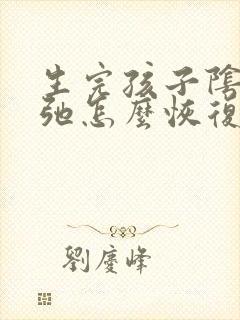 生完孩子陰
弛怎麼恢復
劉慶峰